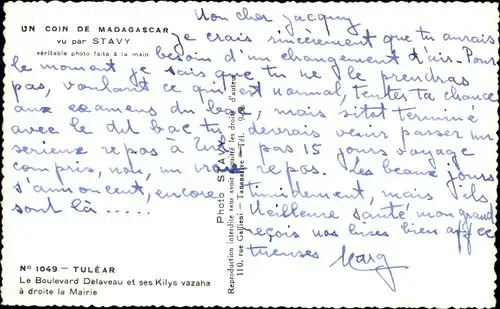 UN COIN DE MADAGASCAR
vu par STAVY
véritable photo faite à la main
Mon cher Jacquy
Je crois sincèrement que tu aurais
besoin d'un changement d'air. Pour
le moment je sais que tu ne le prendras
pas, voulant ce qui est normal, tenter ta chance
aux examens du bac, mais sitot terminé
avec le dit bac tu devrais venir passer un
serieux repos à pas 15 jours voyage
compris, non, un vrai repos. Les beaux jours
s'annoncent, encore timidement, mais ils
sont là .....
Meilleure santé mon grand
reçois nos bises bien affec
tueuses Marg
Photo STAVY
Reproduction interdite sans avoir acquitté les droits d'auteur
110, rue Galliéni - Tananarive - Tél.
Nº 1049 — TULÉAR
Le Boulevard Delaveau et ses Kilys vazaha
à droite la Mairie